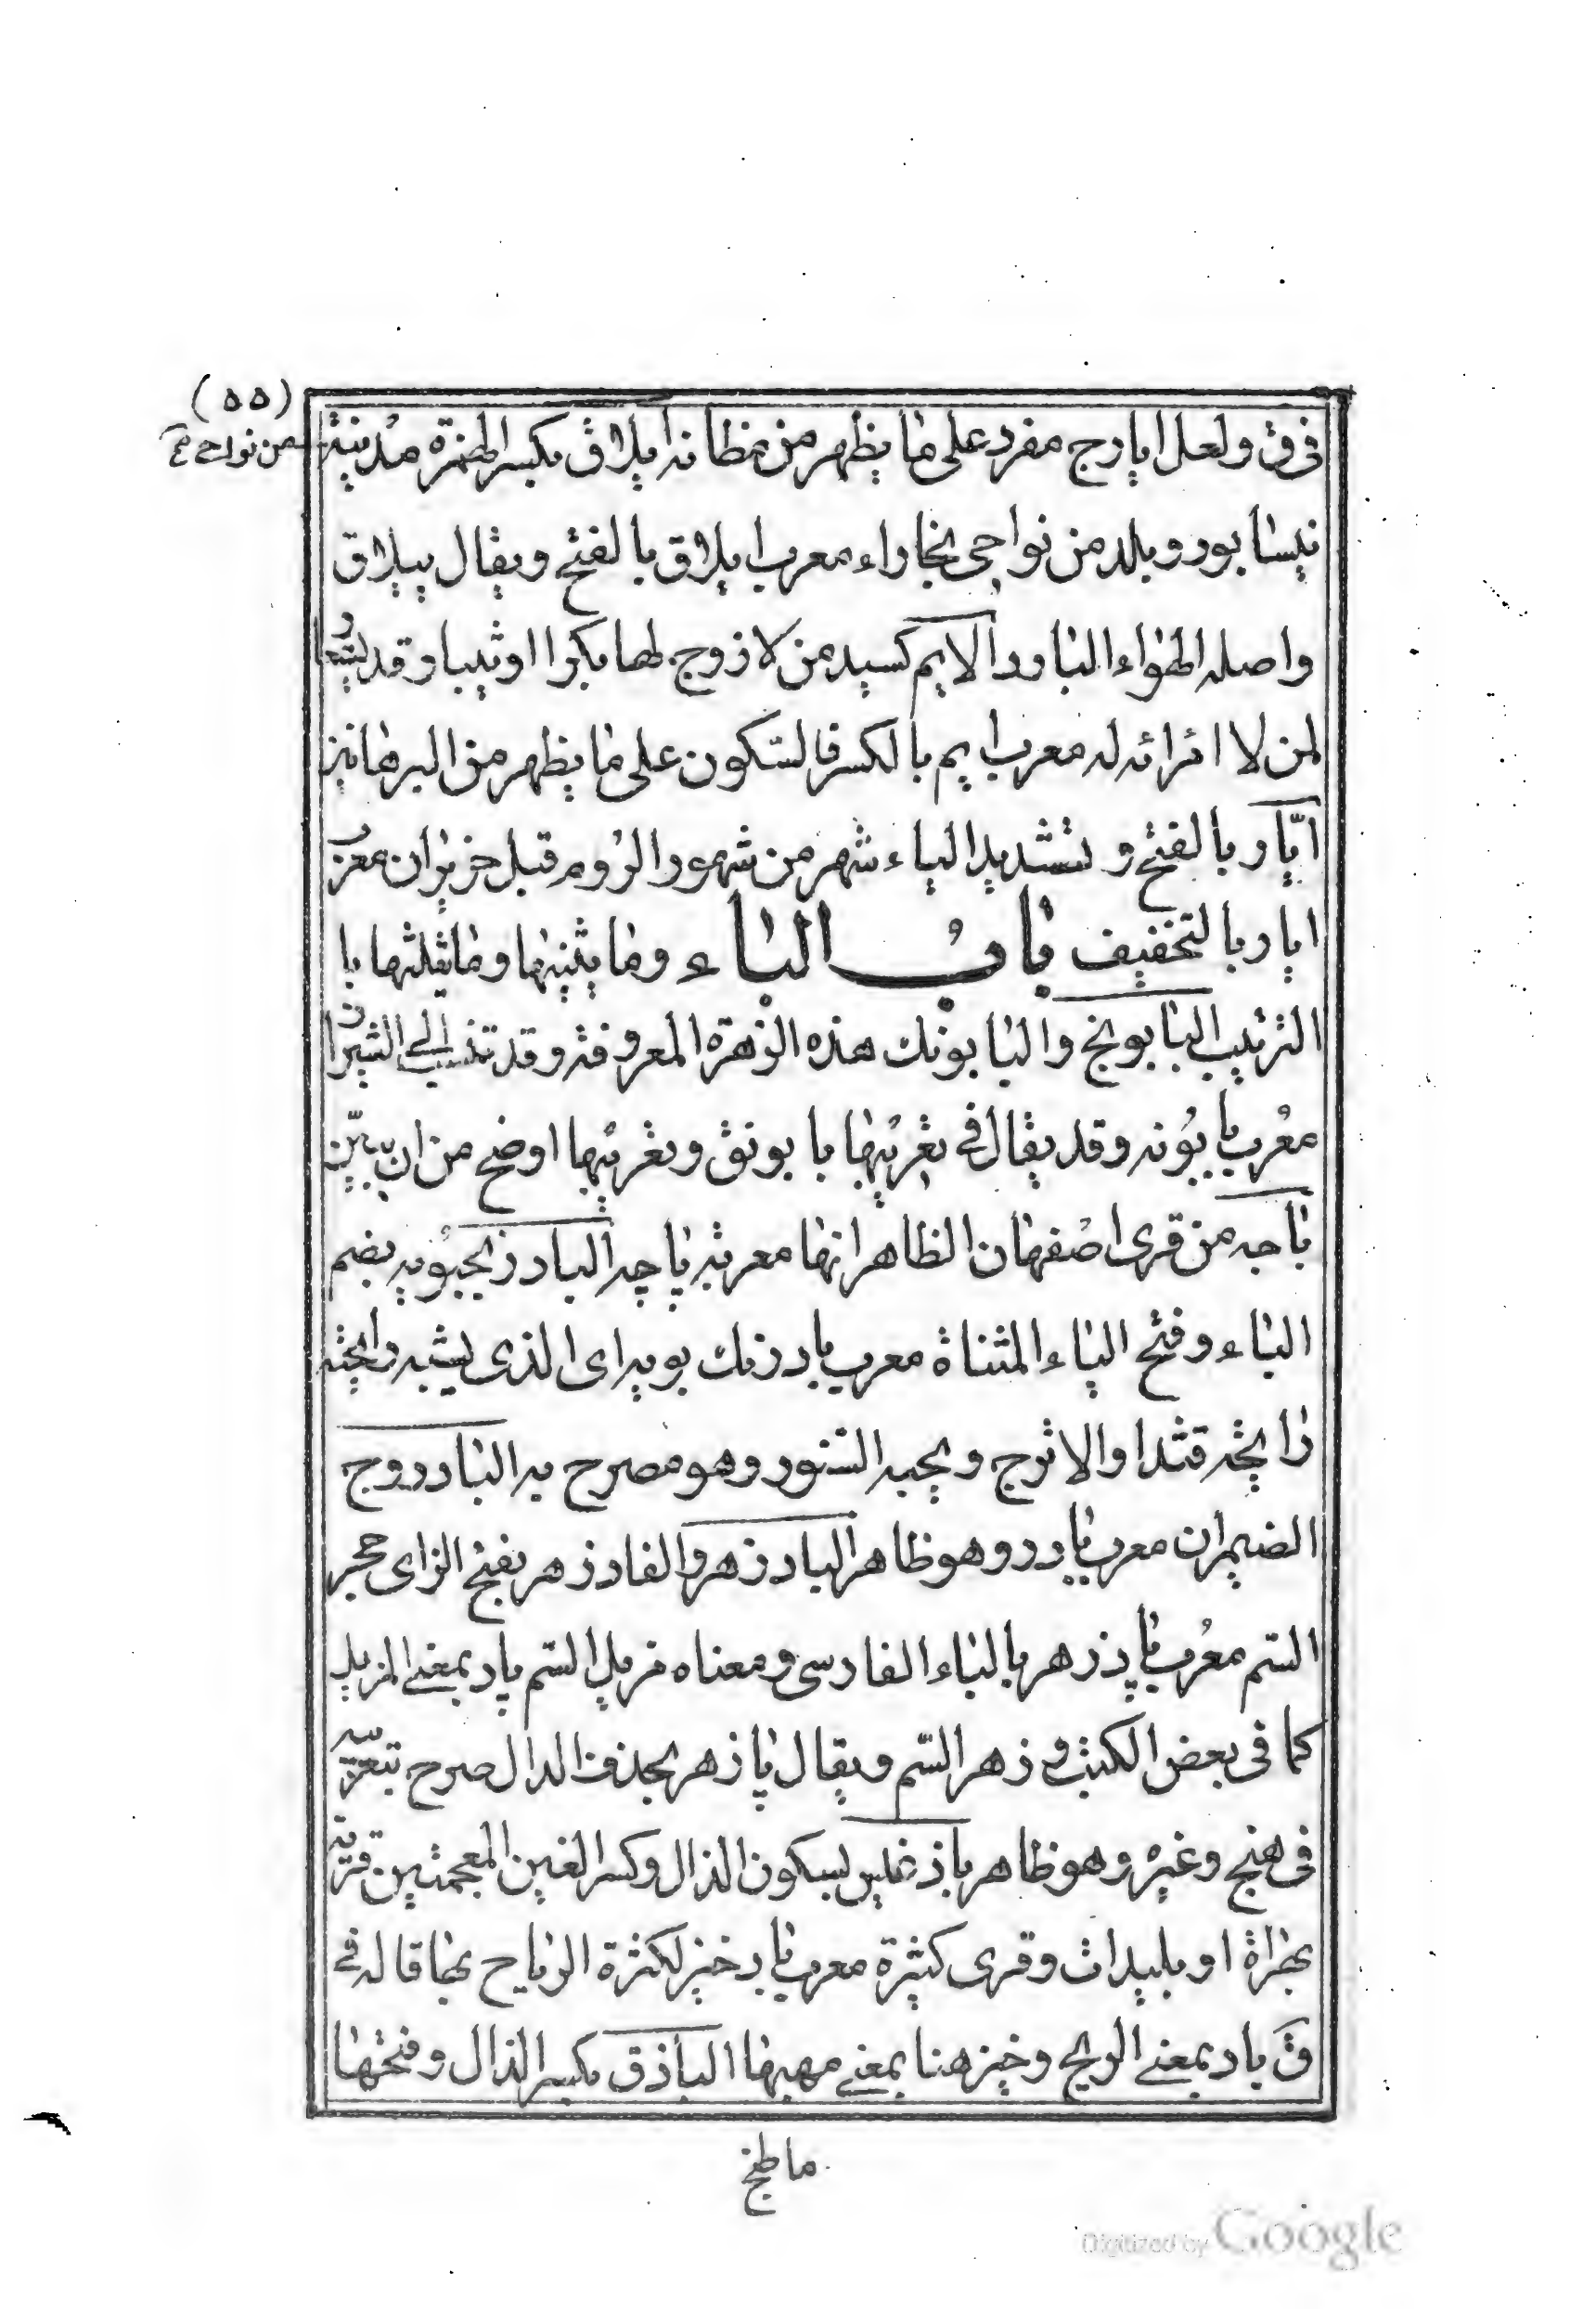 (٥٥)
فى ق ولعل ايارج مفرد على ما يظهر من مظانه ايلاق بكسر الهمزة مدينة
من نواحى
نيسابور وبلد من نواحى بخاراء معرب ايلاق بالفتح ويقال ييلاق
واصله الهواء البارد الايم كسيد من لا زوج لها بكرا او ثيبا وقد يستعار
لمن لا امرائه له معرب ايم بالكسر فالسكون على ما يظهر من البرهانين
ايّار بالفتح وتشديد الياء شهر من شهور الروم قبل حزيران معرب
ايار بالتخفيف باب الباء وما يثنيها وما يثلثها با
الترتيب البابونج والبابونك هذه الزهرة المعروفة وقد تنسب الى الشيراز
معرب بابونه وقد يقال فى تعريبها بابونق وتعريبها اوضح من ان يبيّن
باجه من قرى اصفهان الظاهر انها معربة پاچه البادرنجبويه بضم
الباء وفتح الياء المثناة معرب بادرنك بويه اى الذى يشبه رايحته
رايحة قثدا والاترج ويحبه السنور وهو مصرح به البادروج
الضيمران معرب بادرو وهو ظاهر البادزهر والفادزهر بفتح الزاى حجر
السّم معرب پادزهر بالباء الفارسى ومعناه مزيل السّم پاد بمعنى المزيل
كما فى بعض الكتب وزهر السّم ويقال پازهر بحذف الدال صرح بتعريبه
فى هنج وغيره وهو ظاهر باذغيس بسكون الذال وكسر الغين المعجمتين قرية
بهراة او بليدات وقرى كثيرة معرب باد خيز لكثرة الرياح بها قاله فى
ق باد بمعنى الريح وخيز هنا بمعنى مهبها الباذق بكسر الذال وفتحها
ما طبخ
Digitized by Google